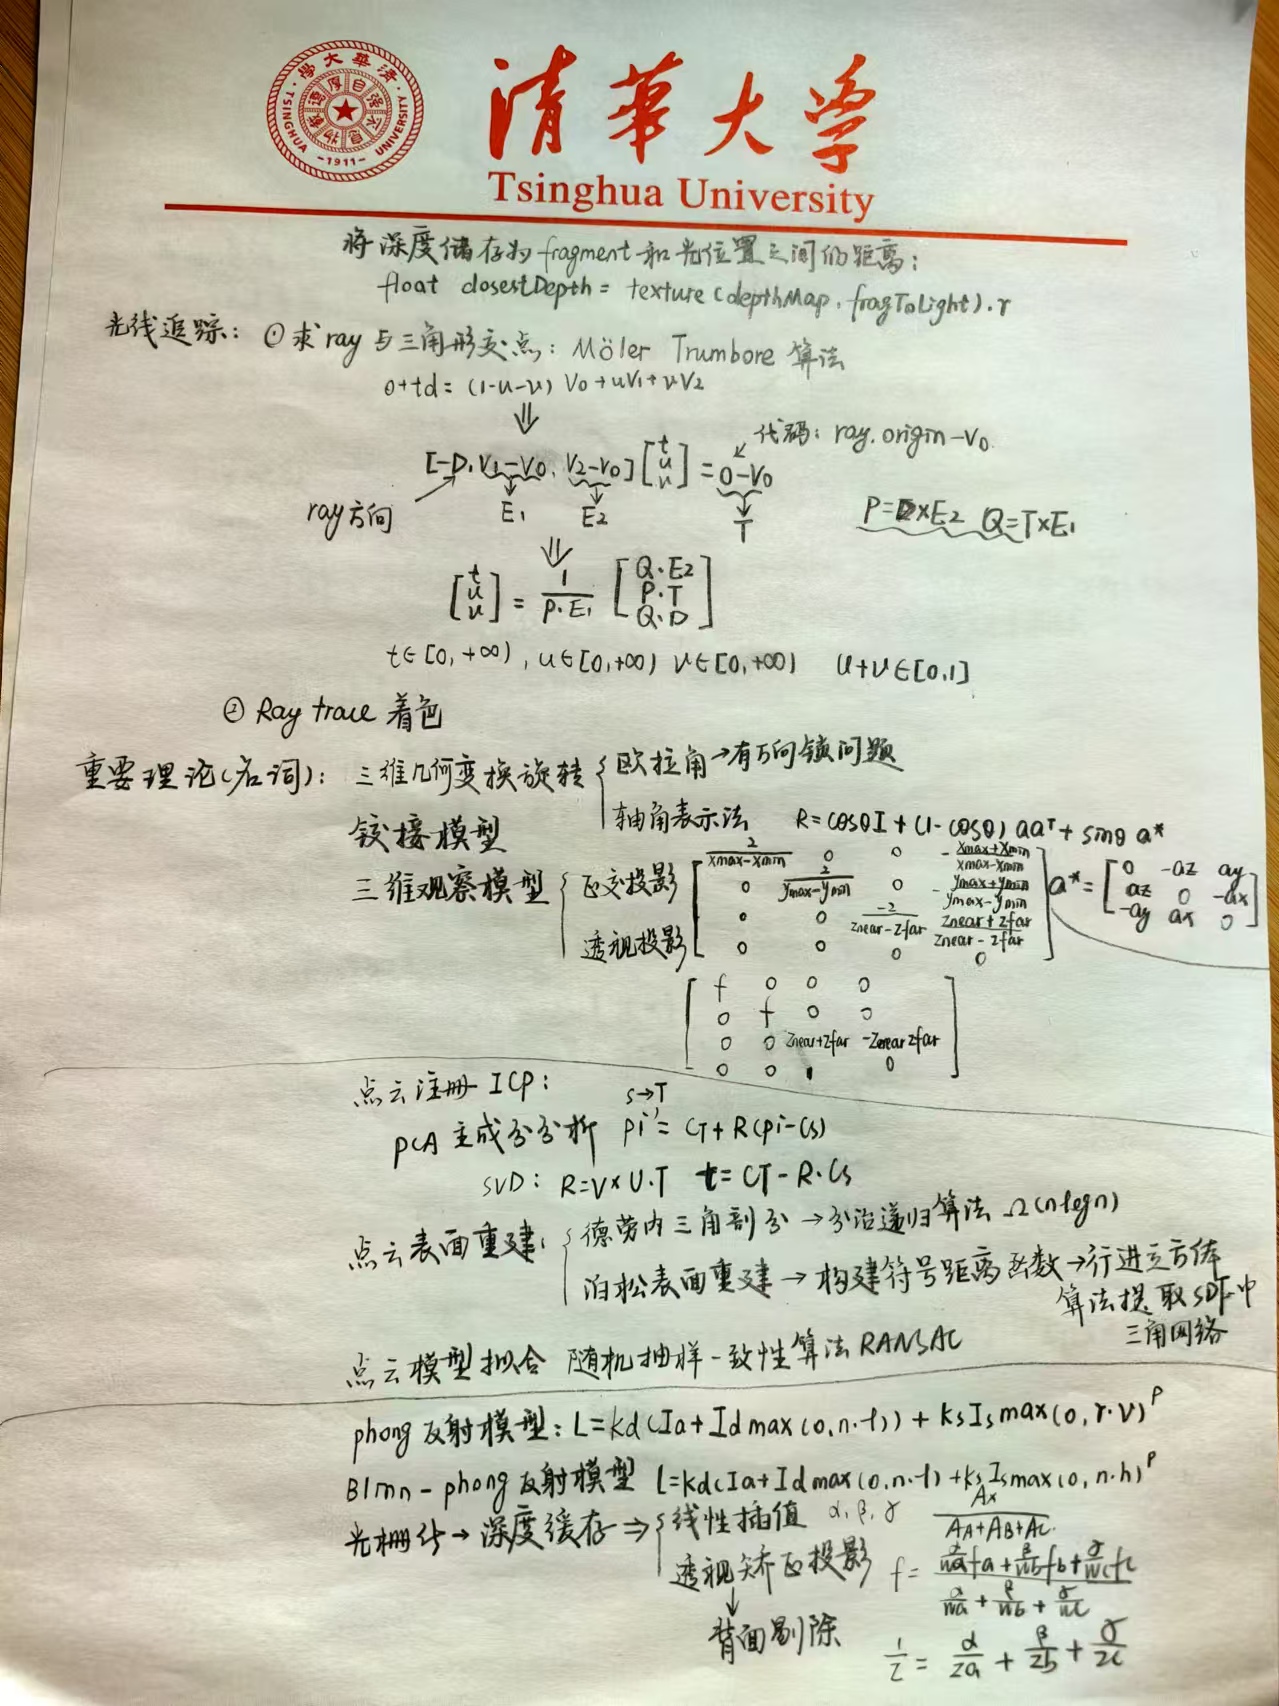 清華大学
Tsinghua University
清華大學
TSINGHUA UNIVERSITY
自强不息 厚德載物
-1911-
将深度储存为fragment和光位置之间的距离:
float closestDepth = texture(depthMap, fragToLight).r
光线追踪: ①求ray与三角形交点: Möler Trumbore 算法
o+td = (1-u-v) V0+uV1+vV2
⇓
代码: ray.origin-V0.
[-D, V1-V0, V2-V0] [t u v] = O-V0
ray方向 E1 E2 T P=D×E2 Q=T×E1
⇓
[t u v] = 1/P·E1 [Q·E2 P·T Q·D]
t∈[0,+∞), u∈[0,+∞) v∈[0,+∞) u+v∈[0,1]
② Ray trace 着色
重要理论(名词): 三维几何变换旋转 { 欧拉角→有万向锁问题
轴角表示法 R=cosθI+(1-cosθ)aaᵀ+sinθ a*
铰接模型
三维观察模型 { 正交投影
透视投影
2/xmax-xmin 0 0 -xmax+xmin/xmax-xmin
0 2/ymax-ymin 0 -ymax+ymin/ymax-ymin
0 0 -2/znear-zfar znear+zfar/znear-zfar
0 0 0 0
a* = [0 -az ay
az 0 -ax
-ay ax 0]
f 0 0 0
0 f 0 0
0 0 znear+zfar -znear zfar
0 0 1 0
点云注册 ICP:
S→T
PCA 主成分分析 pi' = CT+R(pi-Cs)
SVD: R=V×U.T t=CT-R·Cs
点云表面重建: { 德劳内三角剖分→分治递归算法 Ω(nlogn)
泊松表面重建→构建符号距离函数→行进立方体
算法提取SDF中
三角网络
点云模型拟合 随机抽样一致性算法 RANSAC
phong反射模型: L=kd(Ia+Idmax(0,n·l))+ksIsmax(0,r·v)ᴾ
Blinn-phong反射模型 L=kd(Ia+Idmax(0,n·l)+ksIsmax(0,n·h)ᴾ
光栅化→深度缓存⇒ { 线性插值 α,β,γ Ax/AA+AB+AC.
透视矫正投影 f= α/wa fa+β/wb fb+γ/wc fc / α/wa+β/wb+γ/wc
↓
背面剔除
1/z = α/za + β/zb + γ/zc